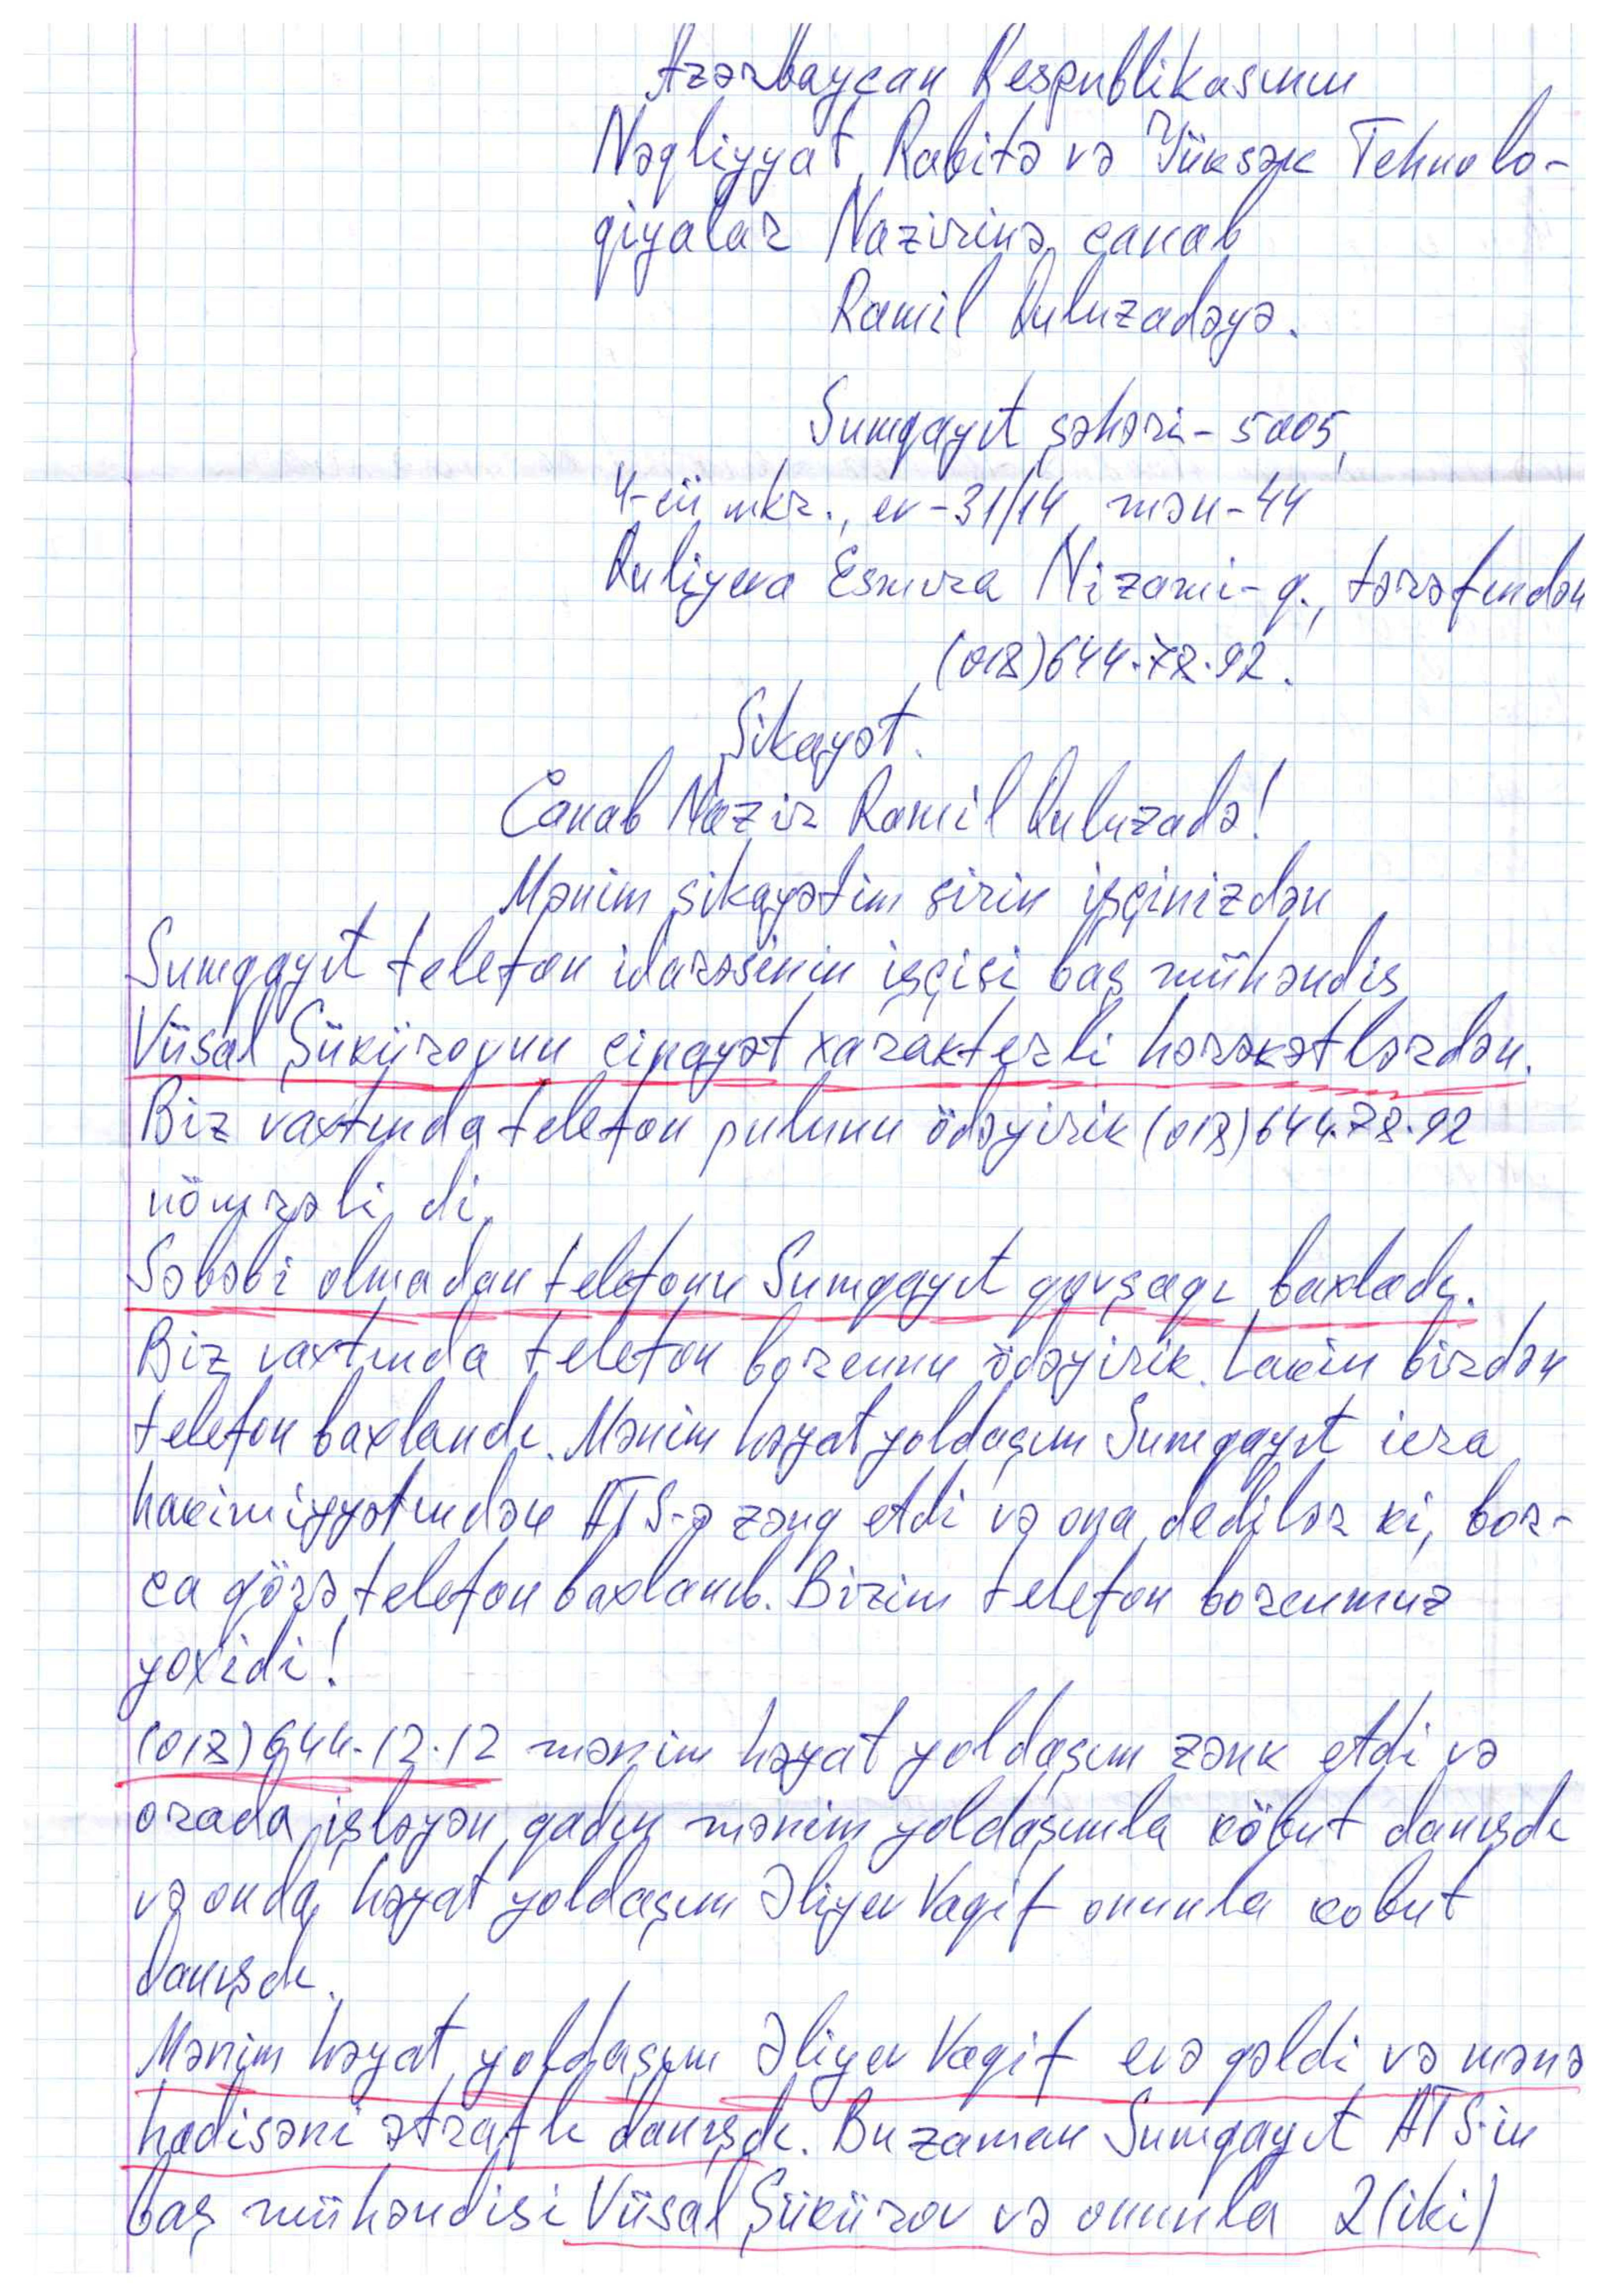 Azərbaycan Respublikasının
Nəqliyyat, Rabitə və Yüksək Tehnolo-
qiyalar Nazirinə, canab
Ramil Quluzadəyə.
Sumqayıt şəhəri - 5005,
4-cü mkr., ev - 31/14, mən - 44
Quliyeva Esmira Nizami - q., tərəfindən
(018) 644-78-92.
Şikayət.
Canab Nazir Ramil Quluzadə!
Mənim şikayətim sizin işçinizdən
Sumqayıt telefon idarəsinin işçisi baş mühəndis
Vüsal Şükürovun cinayət xarakterli hərəkətlərdən.
Biz vaxtında telefon pulunu ödəyirik (018) 644.78.92
nömrəli di.
Səbəbi olmadan telefonu Sumqayıt qovşaqı baxladı.
Biz vaxtında telefon borcunu ödəyirik. Lakin birdən
telefon baxlandı. Mənim həyat yoldaşım Sumqayıt icra
hakimiyyətindən ATS-ə zənq etdi və ona dedilər ki, bor-
ca görə telefon baxlanıb. Bizim telefon borcumuz
yoxidi!
(018) 644-12-12 mənim həyat yoldaşım zənk etdi və
orada işləyən qadın mənim yoldaşımla köbut danışdı
və onda həyat yoldaşım Əliyev Vaqif onunla kobut
danışdı.
Mənim həyat yoldaşım Əliyev Vaqif evə gəldi və mənə
hadisəni ətraflı danışdı. Bu zaman Sumqayıt ATS-in
baş mühəndisi Vüsal Şükürov və onunla 2 (iki)